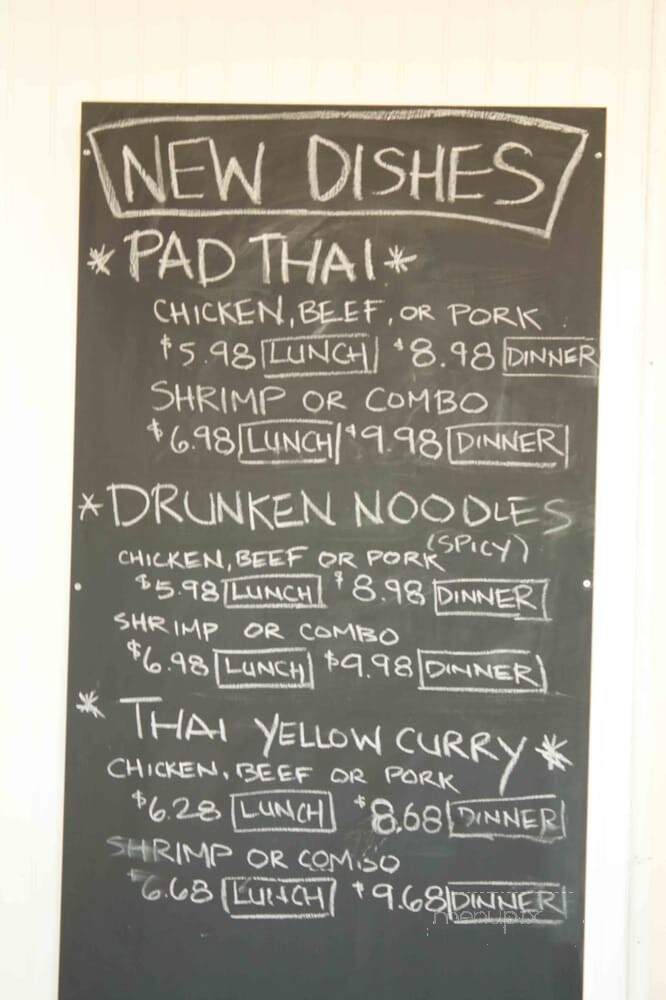 NEW DISHES
* PAD THAI *
CHICKEN, BEEF, OR PORK
$5.98 LUNCH $8.98 DINNER
SHRIMP OR COMBO
$6.98 LUNCH $9.98 DINNER
* DRUNKEN NOODLES
(SPICY)
CHICKEN, BEEF OR PORK
$5.98 LUNCH $8.98 DINNER
SHRIMP OR COMBO
$6.98 LUNCH $9.98 DINNER
* THAI YELLOW CURRY *
CHICKEN, BEEF OR PORK
$6.28 LUNCH $8.68 DINNER
SHRIMP OR COMBO
$6.68 LUNCH $9.68 DINNER
menupix